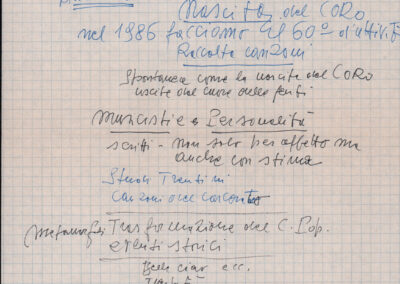 Nascita del CORO
nel 1986 facciamo il 60º d'attività
Raccolta canzoni
Spontanea come la nascita del CORO
uscite dal cuore delle genti
Musicisti e Personalità
scritti - non solo per affetto ma
anche con stima
Studi Trentini
Canzoni del
Trasformazione del C. Pop.
eventi storici
Bella ciao ecc.